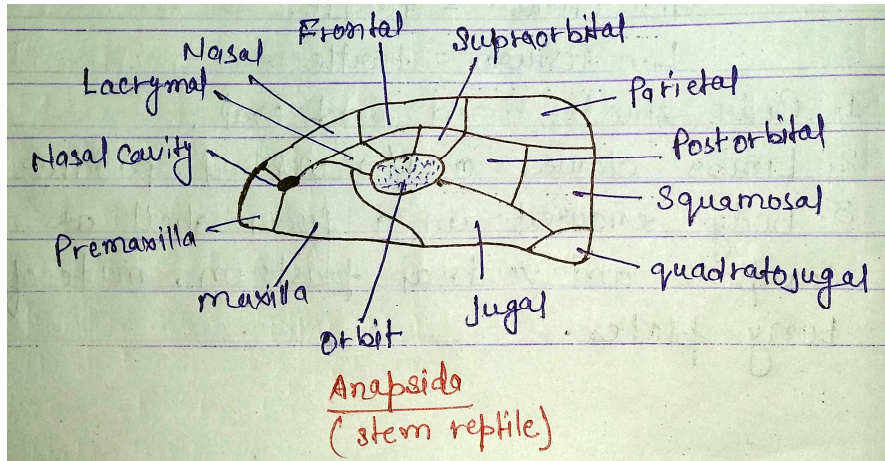 Frontal
Supraorbital
Nasal
Lacrymal
Parietal
Nasal cavity
Postorbital
Squamosal
Premaxilla
quadratojugal
maxilla
Jugal
orbit
Anapsida
(stem reptile)